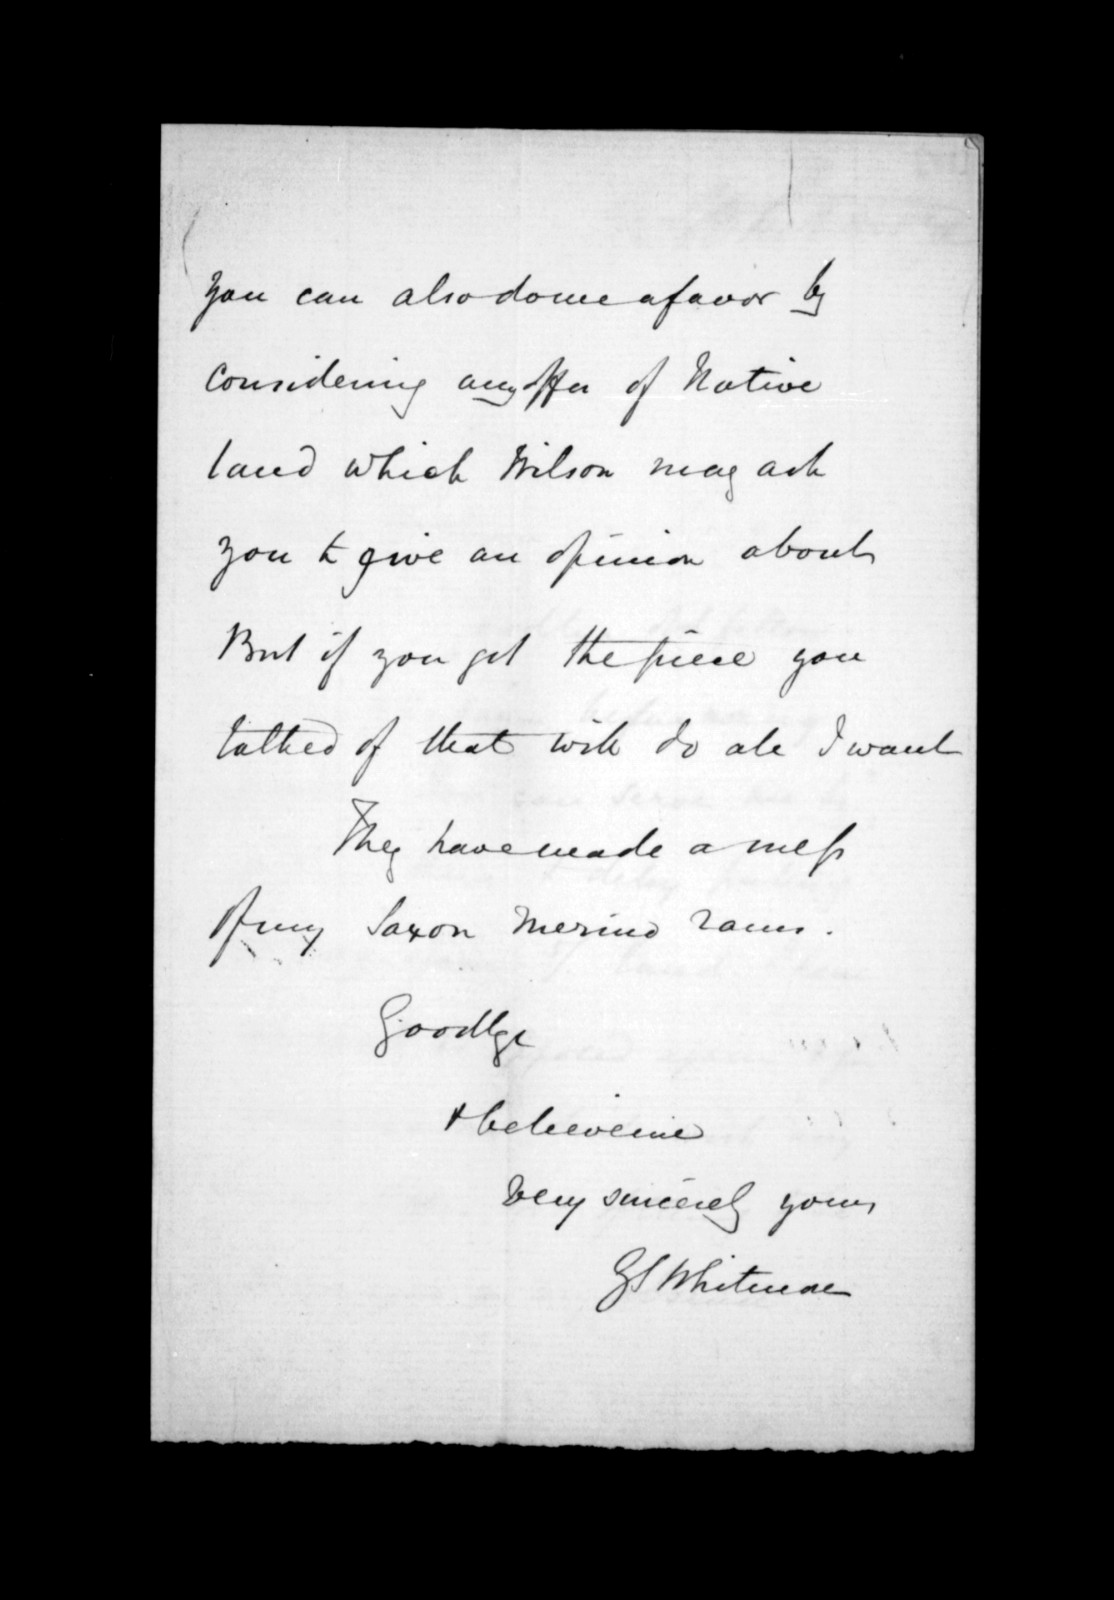 You can also do me a favor by
considering any offer of Native
land which Wilson may ask
you to give an opinion about
But if you get the piece you
talked of that will do all I want
They have made a mess
of my Saxon Merino rams.
Goodbye
& believe me
Very sincerely yours
GS Whitmore